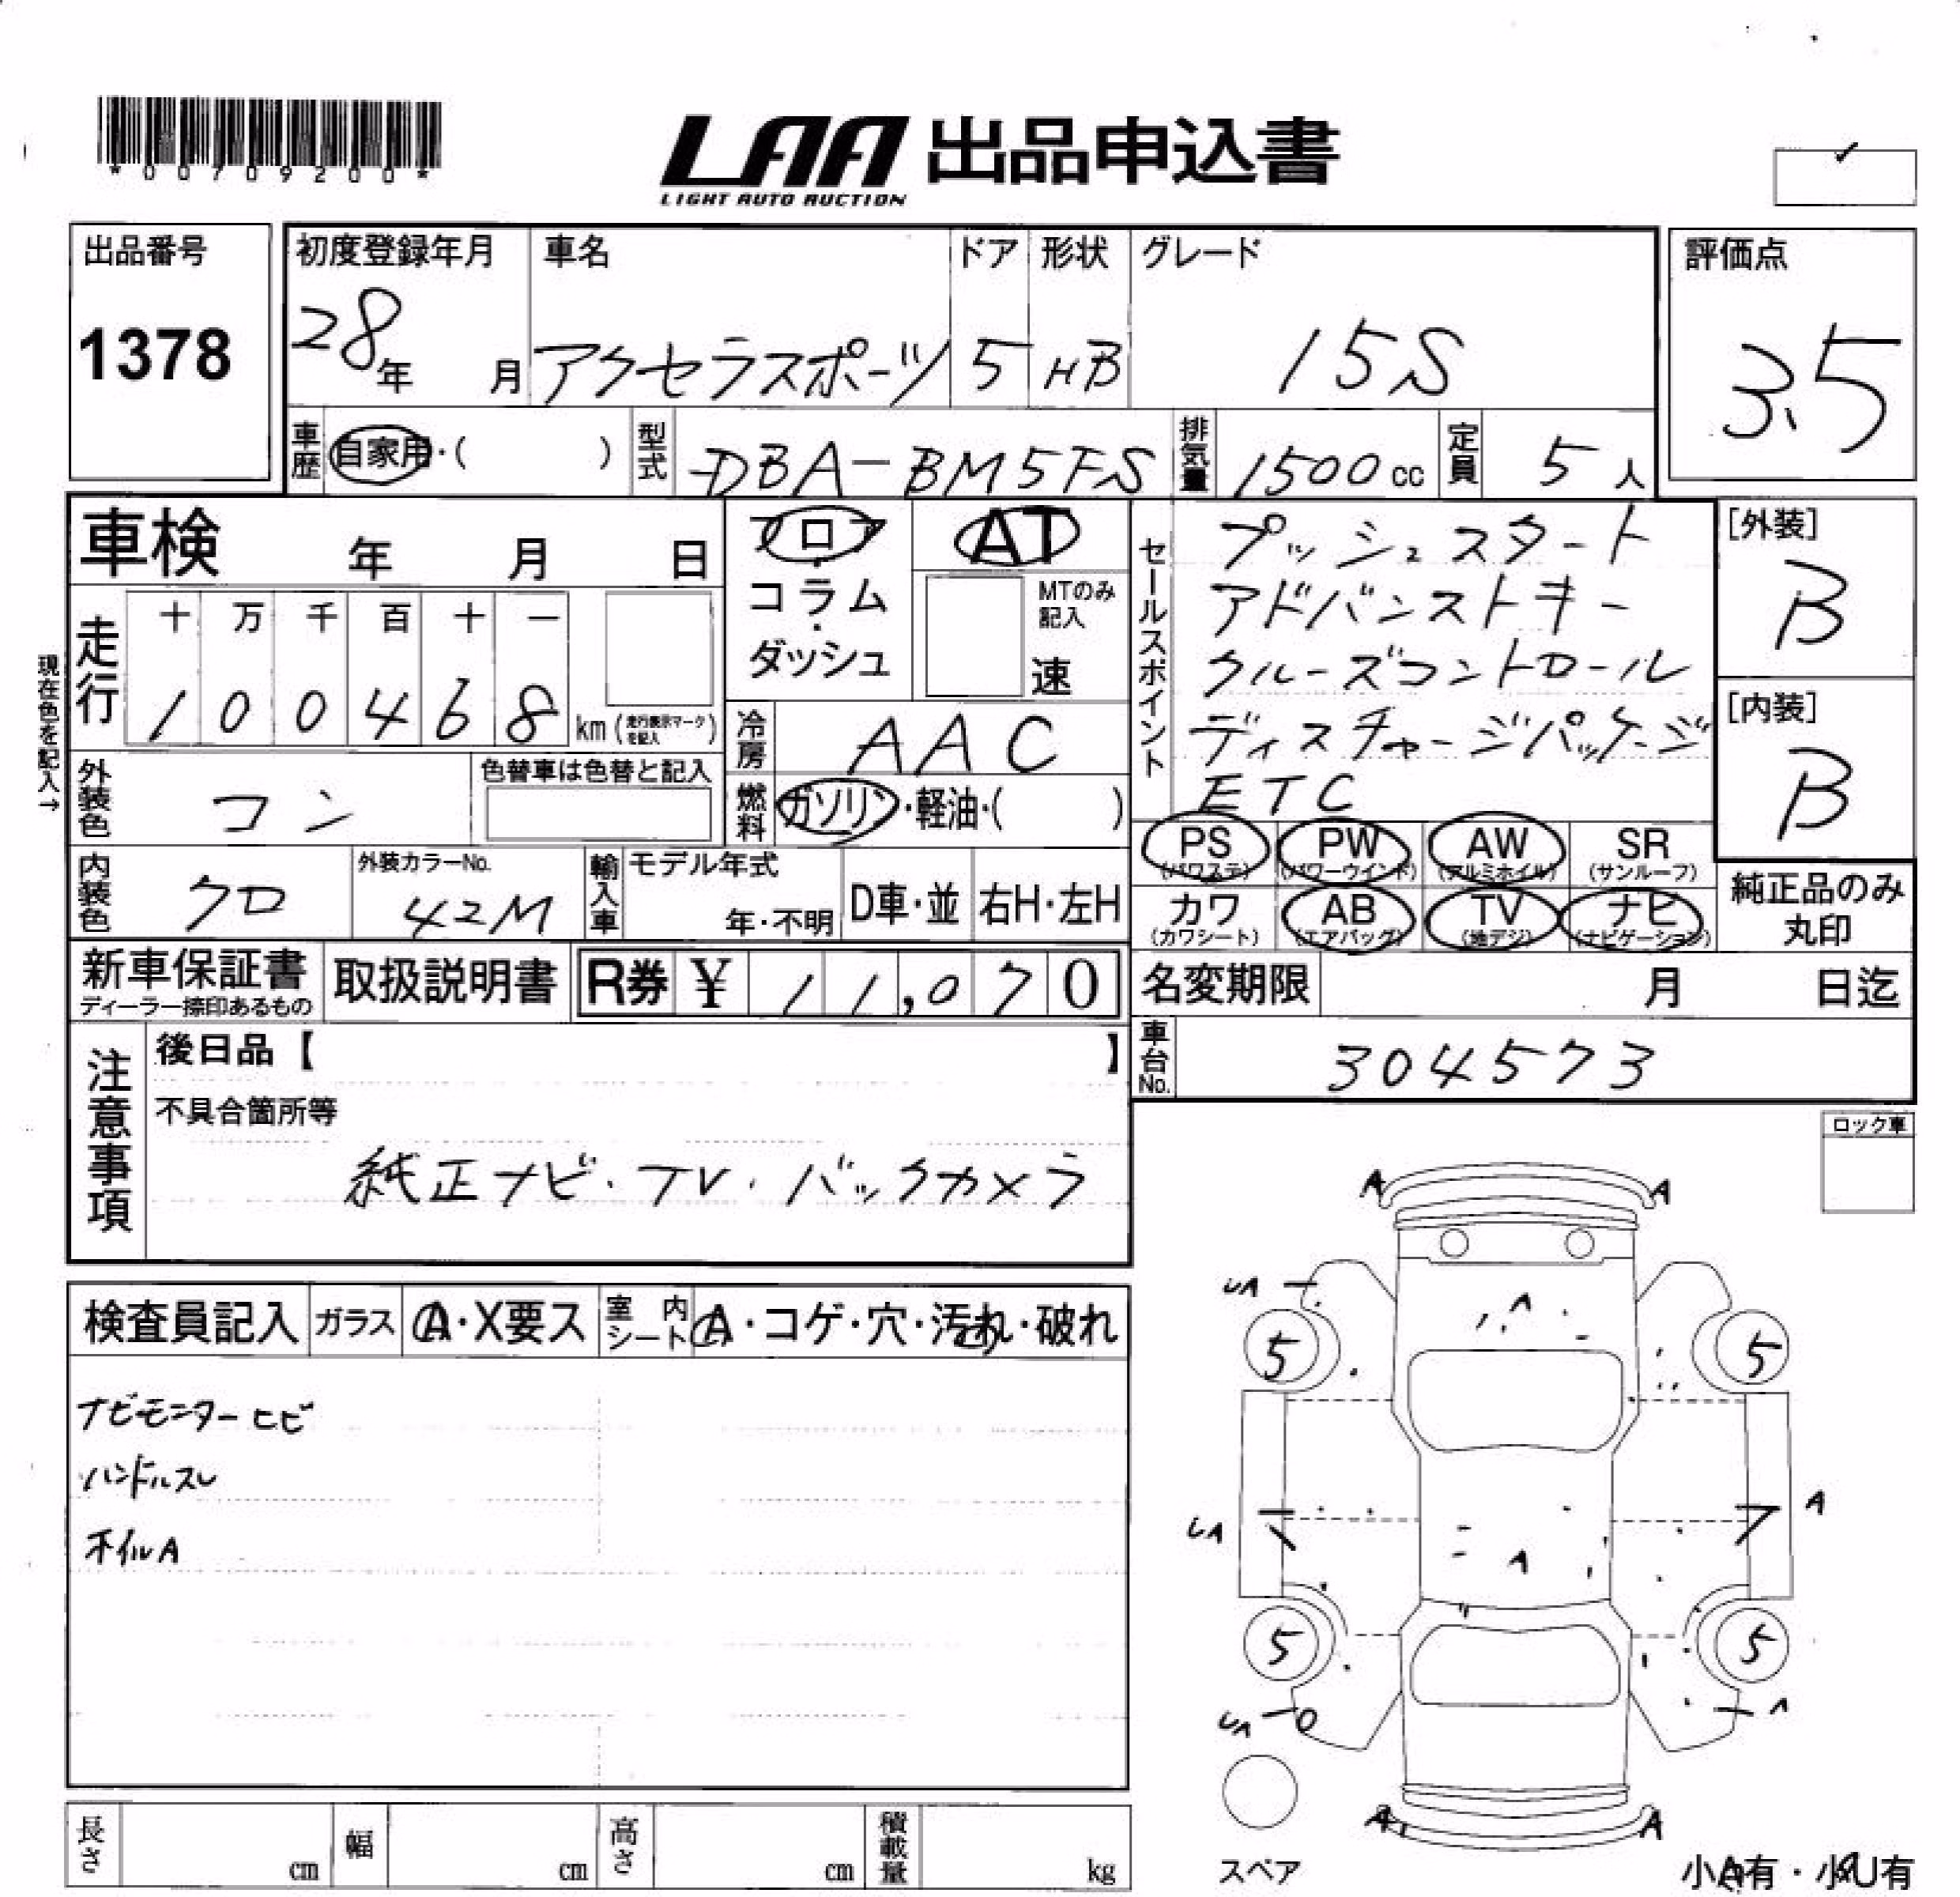 *00709200*
LAA 出品申込書
LIGHT AUTO AUCTION
出品番号
1378
初度登録年月 車名 ドア 形状 グレード
28年 月 アクセラスポーツ 5 HB 15S
評価点
3.5
車歴 自家用・( ) 型式 DBA-BM5FS 排気量 1500cc 定員 5人
車検 年 月 日
フロア
コラム
ダッシュ
AT
MTのみ記入
速
セールスポイント
プッシュスタート
アドバンストキー
クルーズコントロール
ディスチャージパッケージ
ETC
[外装]
B
[内装]
B
現在色を記入→
走行 十 万 千 百 十 一
100468 km (走行表示マークを記入)
冷房 AAC
外装色 コン 色替車は色替と記入
燃料 ガソリン・軽油・( )
PS PW AW SR
(パワステ) (パワーウインド) (アルミホイル) (サンルーフ)
カワ AB TV ナビ
(カワシート) (エアバッグ) (地デジ) (ナビゲーション)
純正品のみ
丸印
内装色 クロ 外装カラーNo. 42M 輸入車 モデル年式 年・不明 D車・並 右H・左H
新車保証書
ディーラー捺印あるもの
取扱説明書 R券 ¥ 11,070
名変期限 月 日迄
車台No. 304573
注意事項
後日品【 】
不具合箇所等
純正ナビ・TV・バックカメラ
ロック車
検査員記入 ガラス A・X要ス 室内シート A・コゲ・穴・汚れ・破れ
ナビモニターヒビ
ハンドルスレ
ホイルA
A A
UA A
5 5
UA A A
5 5
UA A
A A
スペア
小A有・小U有
長さ cm 幅 cm 高さ cm 積載量 kg